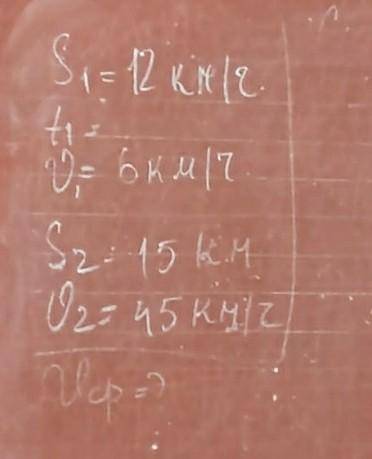 S₁ = 12 км/ч.
t₁ =
υ₁ = 6 км/ч.
S₂ = 15 км
υ₂ = 45 км/ч
υср = ?